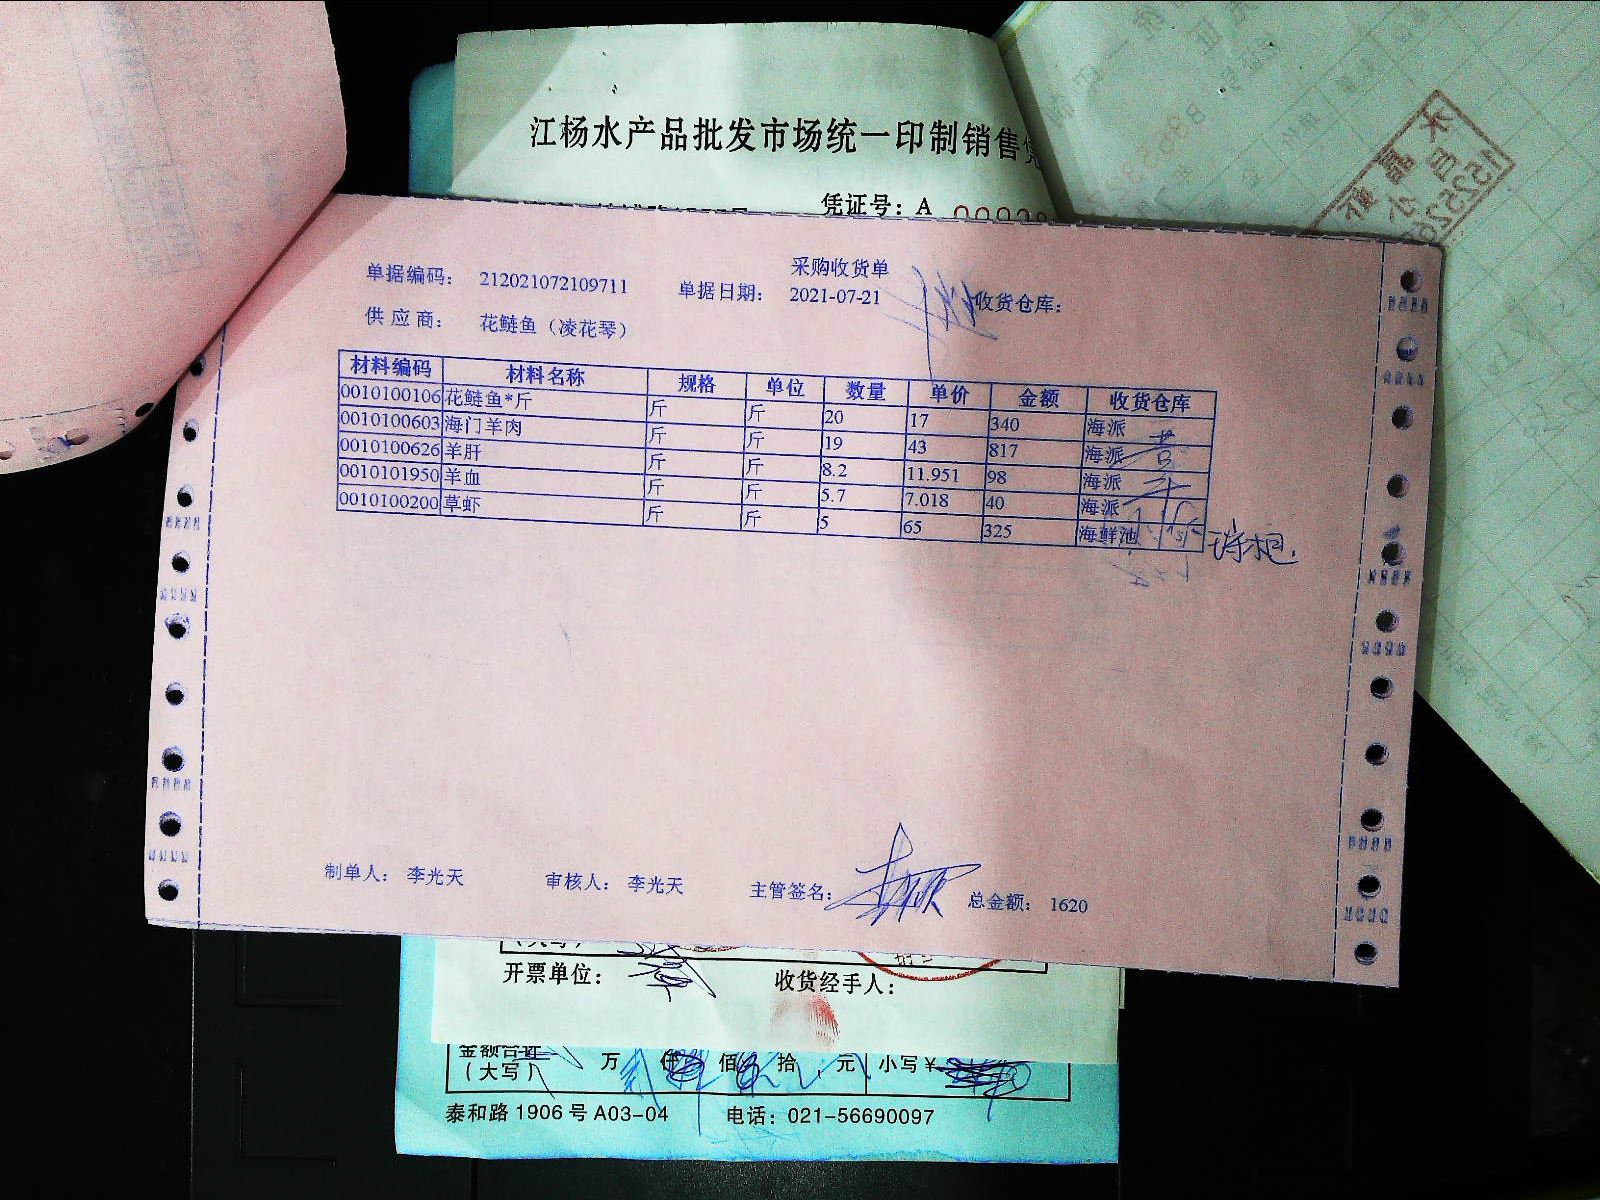 江杨水产品批发市场统一印制销售
凭证号：A
采购收货单
单据编码： 212021072109711 单据日期： 2021-07-21 收货仓库：
供应商： 花鲢鱼（凌花琴）
材料编码 材料名称 规格 单位 数量 单价 金额 收货仓库
0010100106 花鲢鱼*斤 斤 斤 20 17 340 海派
0010100603 海门羊肉 斤 斤 19 43 817 海派
0010100626 羊肝 斤 斤 8.2 11.951 98 海派
0010101950 羊血 斤 斤 5.7 7.018 40 海派
0010100200 草虾 斤 斤 5 65 325 海鲜池
制单人： 李光天 审核人： 李光天 主管签名： 总金额： 1620
开票单位： 收货经手人：
金额合计 万 仟 佰 拾 元 小写¥
（大写）
泰和路1906号A03-04 电话：021-56690097